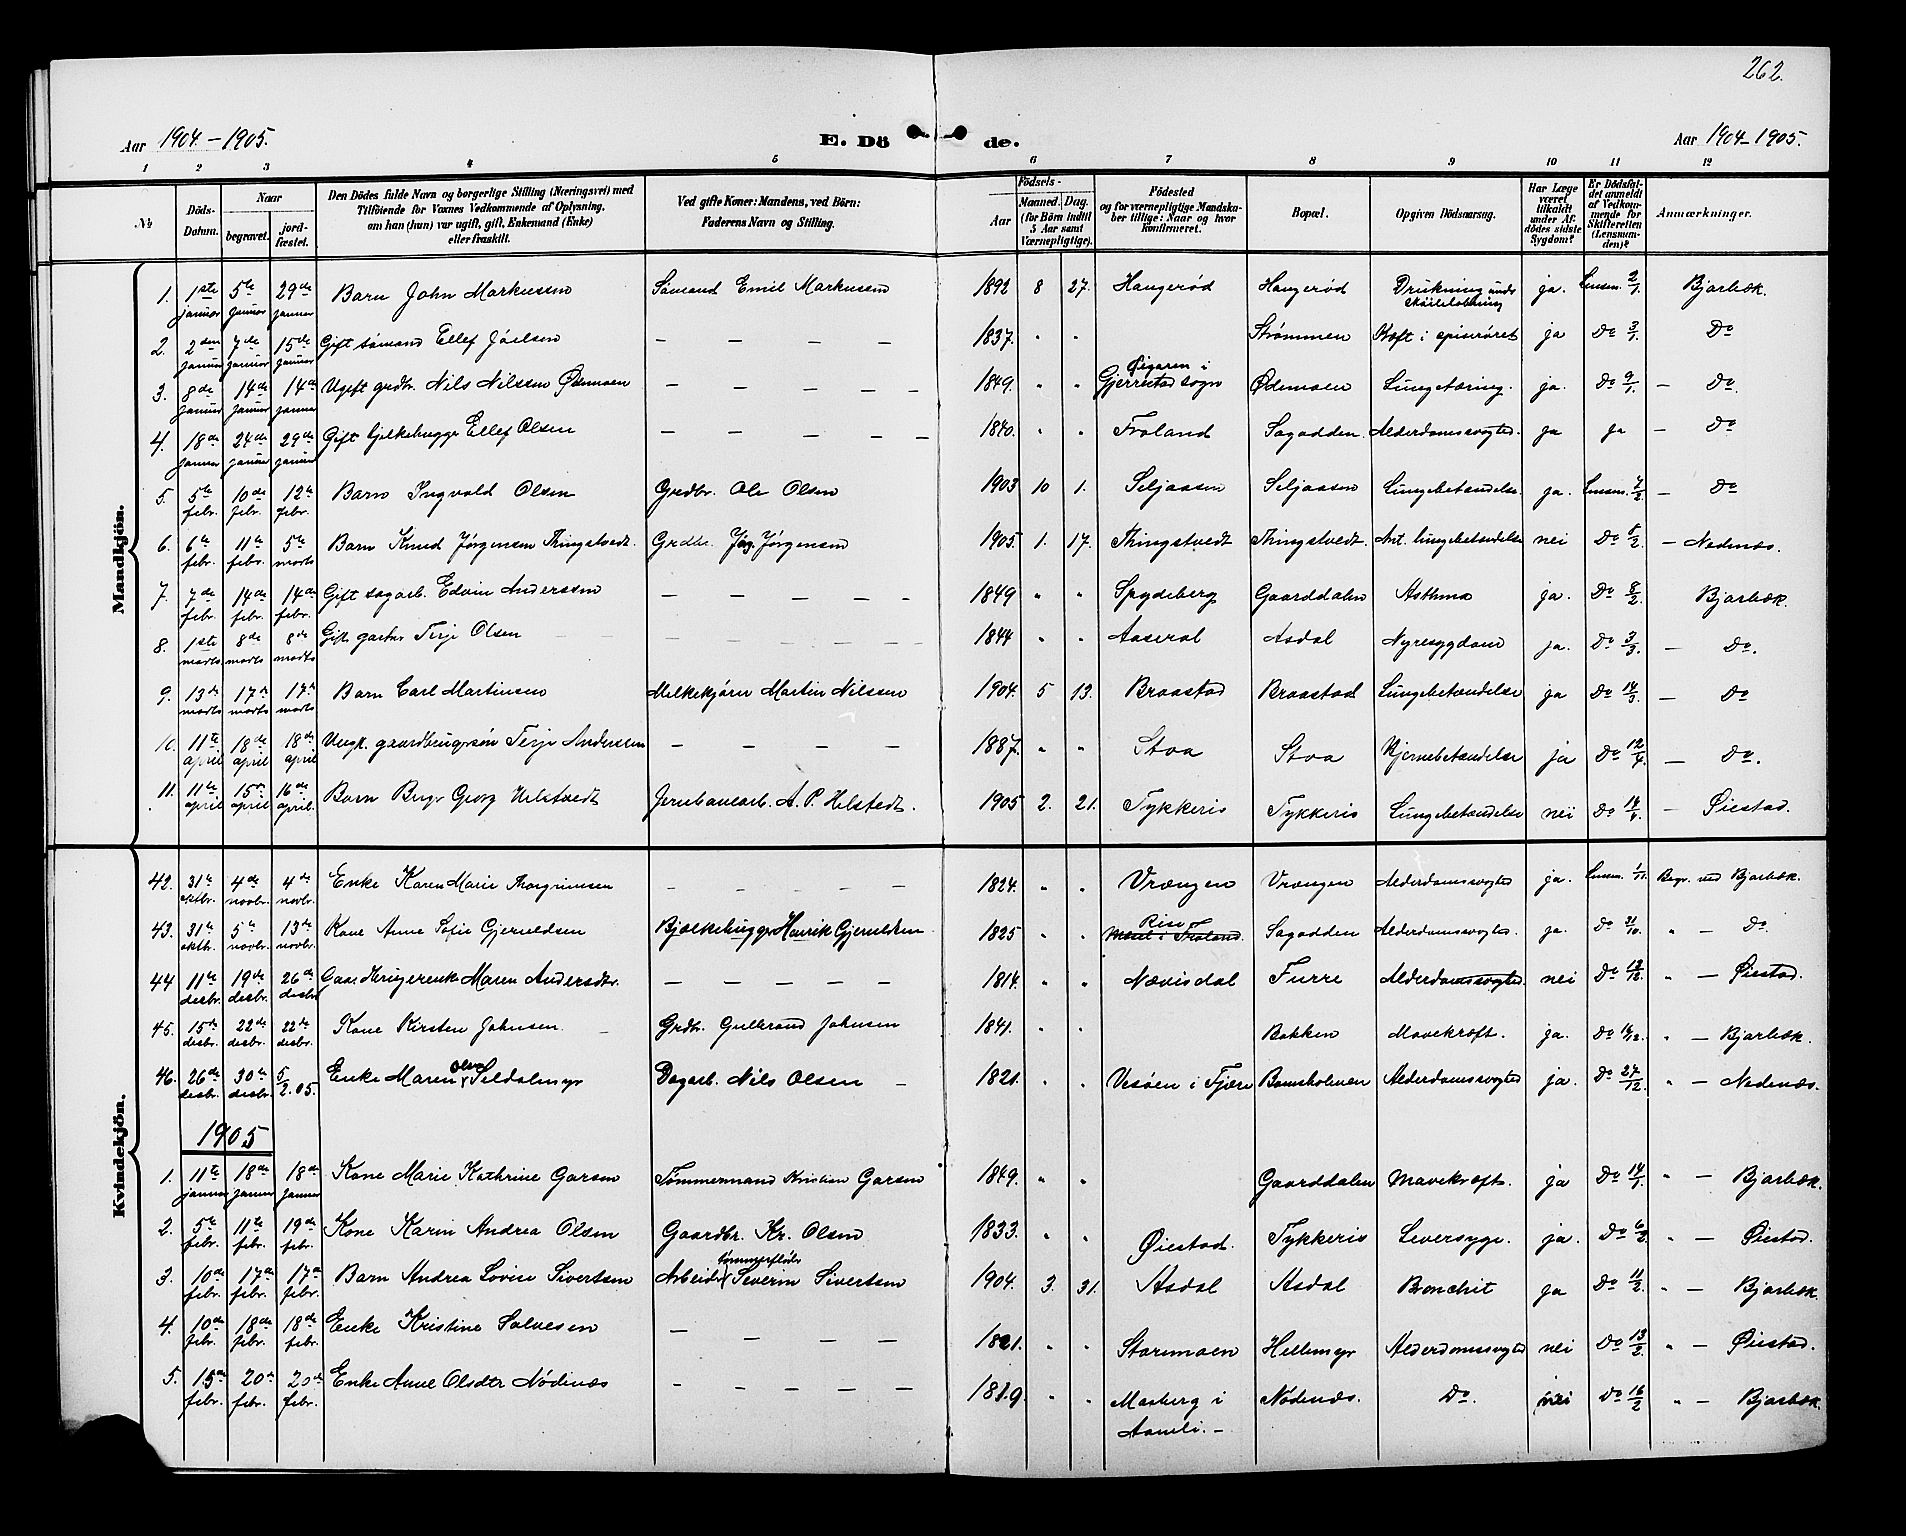 262.
Aar 1904-1905.
E. Dö de.
Aar 1904-1905.
1 2 3 4 5 6 7 8 9 10 11 12
№
Döds-Datum.
Naar
begravet. jord-fæstet.
Den Dödes fulde Navn og borgerlige Stilling (Næringsvei) med Tilföiende for Voxnes Vedkommende af Oplysning, om han (hun) var ugift, gift, Enkemand (Enke) eller fraskilt.
Ved gifte Koner: Mandens, ved Börn: Faderens Navn og Stilling.
Födsels-
Aar
Maaned. Dag.
(for Börn indtil 5 Aar samt Værnepligtige).
Födested og for værnepligtige Mandskaber tillige: Naar og hvor konfirmeret.
Bopæl.
Opgiven Dödsaarsag.
Har Læge været tilkaldt under Afdödes sidste Sygdom?
Er Dödsfaldet anmeldt af Vedkommende for Skifteretten (Lensmanden)?
Anmærkninger.
Mandkjön.
1. 1ste januar 5te januar 29de januar Barn John Markussen Sömand Emil Markussen 1892 8 27. Haugeröd Haugeröd Drukning under skøiteløbning ja. Lensm. 2/1. Bjorbæk.
2. 2den januar 7de januar 15de januar Gift sømand Ellef Jöelsen — — — — 1837. " " Strømmen Kræft i spiserøret ja Do 3/1. Do
3. 8de januar 14de januar 14de januar Ugift grdbr. Nils Nilssen Ødemoen — — — — — 1849. " " Øigaren i Gjerrestad sogn Ødemoen Lungetæring. ja. Do 9/1. — Do
4. 18de januar 24de januar 29de januar Gift bjelkehugger Ellef Olsen — — — — — 1840. " " Froland Sagodden. Alderdomssvaghed. ja ja — Do
5. 5te febr. 10de febr. 12te febr. Barn Ingvald Olsen Grdbr. Ole Olsen 1903 10 1. Seljaasen Seljaasen Lungebetændelse. ja. Lensm. 7/2. — Do
6. 6te febr. 11te febr. 5te marts Barn Knud Jørgensen Thingstvedt. Grdbr. Jørg. Jørgensen 1905. 1. 17. Thingstvedt Thingstvedt. Ant. lungebetændelse nei Do 8/2. — Nedenæs.
7. 7de febr. 14de febr. 14de febr. Gift sagarb. Edvin Anderssen — — — — — 1849 " " Spydeberg Gaarddalen Asthma ja. Do 8/2. Bjorbæk.
8. 1ste marts 8de marts 8de marts Gift gartner Terje Olsen — — — — — 1844 " " Aaseral Asdal Nyresygdom ja. Do 3/3. — Do.
9. 13de marts 17de marts 17de marts Barn Carl Martinsen Melkekjører Martin Nilssen 1904. 5 13. Braastad Braastad Lungebetændelse ja Do 14/3. — Do
10. 11te april 18de april 18de april Ungk. gaardbrugersøn Terje Anderssen — — — — 1887. " " Stoa Stoa Hjernebetændelse ja Do 12/4. — Do.
11. 11te april 15de april 16de april. Barn Georg Helstvedt Jernbanearb. A. P. Helstedt. 1905 2. 21. Tykkeris Tykkeris Lungebetændelse nei Do 14/4. — Øiestad.
Kvindekjön.
42. 31te oktbr. 4de novbr. 4de novbr. Enke Karen Marie Thorgrimsen — — — — — 1824. " " Vrængen Vrængen Alderdomssvaghed ja. Lensm. 1/11. Begr. ved Bjorbæk.
43. 31te oktbr. 5te novbr. 13de novbr. Kone Anne Sofie Gjeruldsen Bjælkehugger Henrik Gjeruldsen 1825 " " Rise i Froland. Sagodden Alderdomssvaghed. ja. Do 31/10. " — Do
44 11te desbr. 19de desbr. 26de desbr. Gaardbrugerenke Maren Andersdtr. — — — — — 1814. " " Nævisdal Furre Alderdomssvaghed nei Do 13/12. " — Øiestad.
45. 15de desbr. 22de desbr. 22de desbr. Kone Kirsten Johnsen. Grdbr. Gulbrand Johnsen 1841. " " Bakken Mavekræft. ja. Do 16/12. " — Bjorbæk.
46. 26de desbr. 30te desbr. 5/2.05. Enke Maren Olsen Seldalmyr Dagarb. Nils Olsen — 1821. " " Vesøen i Fjære Bomsholmen Alderdomssvaghed ja. Do 27/12. " — Nedenæs.
1905
1. 11te januar 18de januar 18de januar Kone Marie Kathrine Garsen Tømmermand Kristian Garsen 1849. " " Gaarddalen Mavekræft. ja Do 14/1. " — Bjorbæk.
2. 5te febr. 11te febr. 19de febr. Kone Karin Andrea Olsen Gaardbr. Kr. Olsen 1833. " " Øiestad. Tykkeris Leversyge. ja. Do 6/2. " — Øiestad.
3. 10de febr. 17de febr. 17de febr. Barn Andrea Lovise Sivertsen Arbeider tømmerfløder Severin Sivertsen 1904. 3. 31. Asdal Asdal Bronchit ja Do 11/2. " — Bjorbæk.
4. 10de febr. 18de febr. 18de febr. Enke Kristine Salvesen — — — — 1821. " " Storemoen Hellemyr Alderdomssvaghed nei Do 13/2. " — Øiestad.
5. 15de febr. 20de febr. 20de febr. Enke Anne Olsdtr Nödenæs — — — — — 1819. " " Masberg i Aamli. — Nödenæs. Do. nei Do 16/2. " — Bjorbæk.